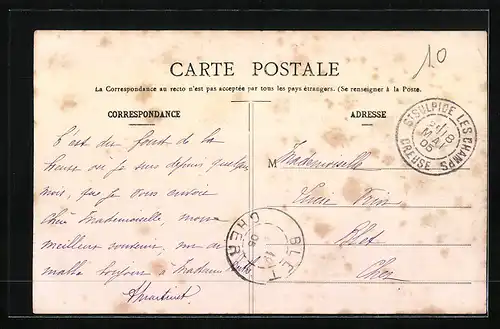 10
CARTE POSTALE
La Correspondance au recto n'est pas acceptée par tous les pays étrangers. (Se renseigner à la Poste.
CORRESPONDANCE
ADRESSE
ST SULPICE LES CHAMPS
MAI
05
CREUSE
C'est du fond de la
où je suis depuis quelques
mois, que je vous envoie
Chère Mademoiselle, mon
meilleur souvenir,
toujours à Madame
M Mademoiselle
Blet
Cher
BLET
05
CHER